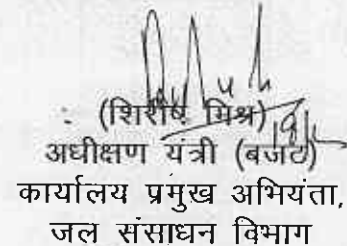 (शिरीष मिश्र)
अधीक्षण यंत्री (बजट)
कार्यालय प्रमुख अभियंता,
जल संसाधन विभाग